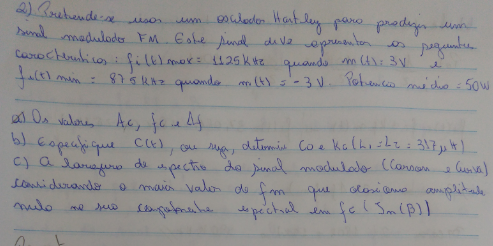 2) Pretende-se usar um oscilador Hartley para produzir um
sinal modulado FM. Este sinal deve apresentar as seguintes
características: fi(t) max = 1125 kHz quando m(t) = 3V e
fi(t) min = 875 kHz quando m(t) = -3V. Potência média = 50W
a) Os valores Ac, fc e Δf
b) Especifique C(t), ou seja, determine Co e Kc (L1 = L2 = 317μH)
c) A largura de espectro do sinal modulado (Carson e Curva)
considerando o maior valor de fm que ocasione amplitude
nula no seu componente espectral em fc (Jn(β))